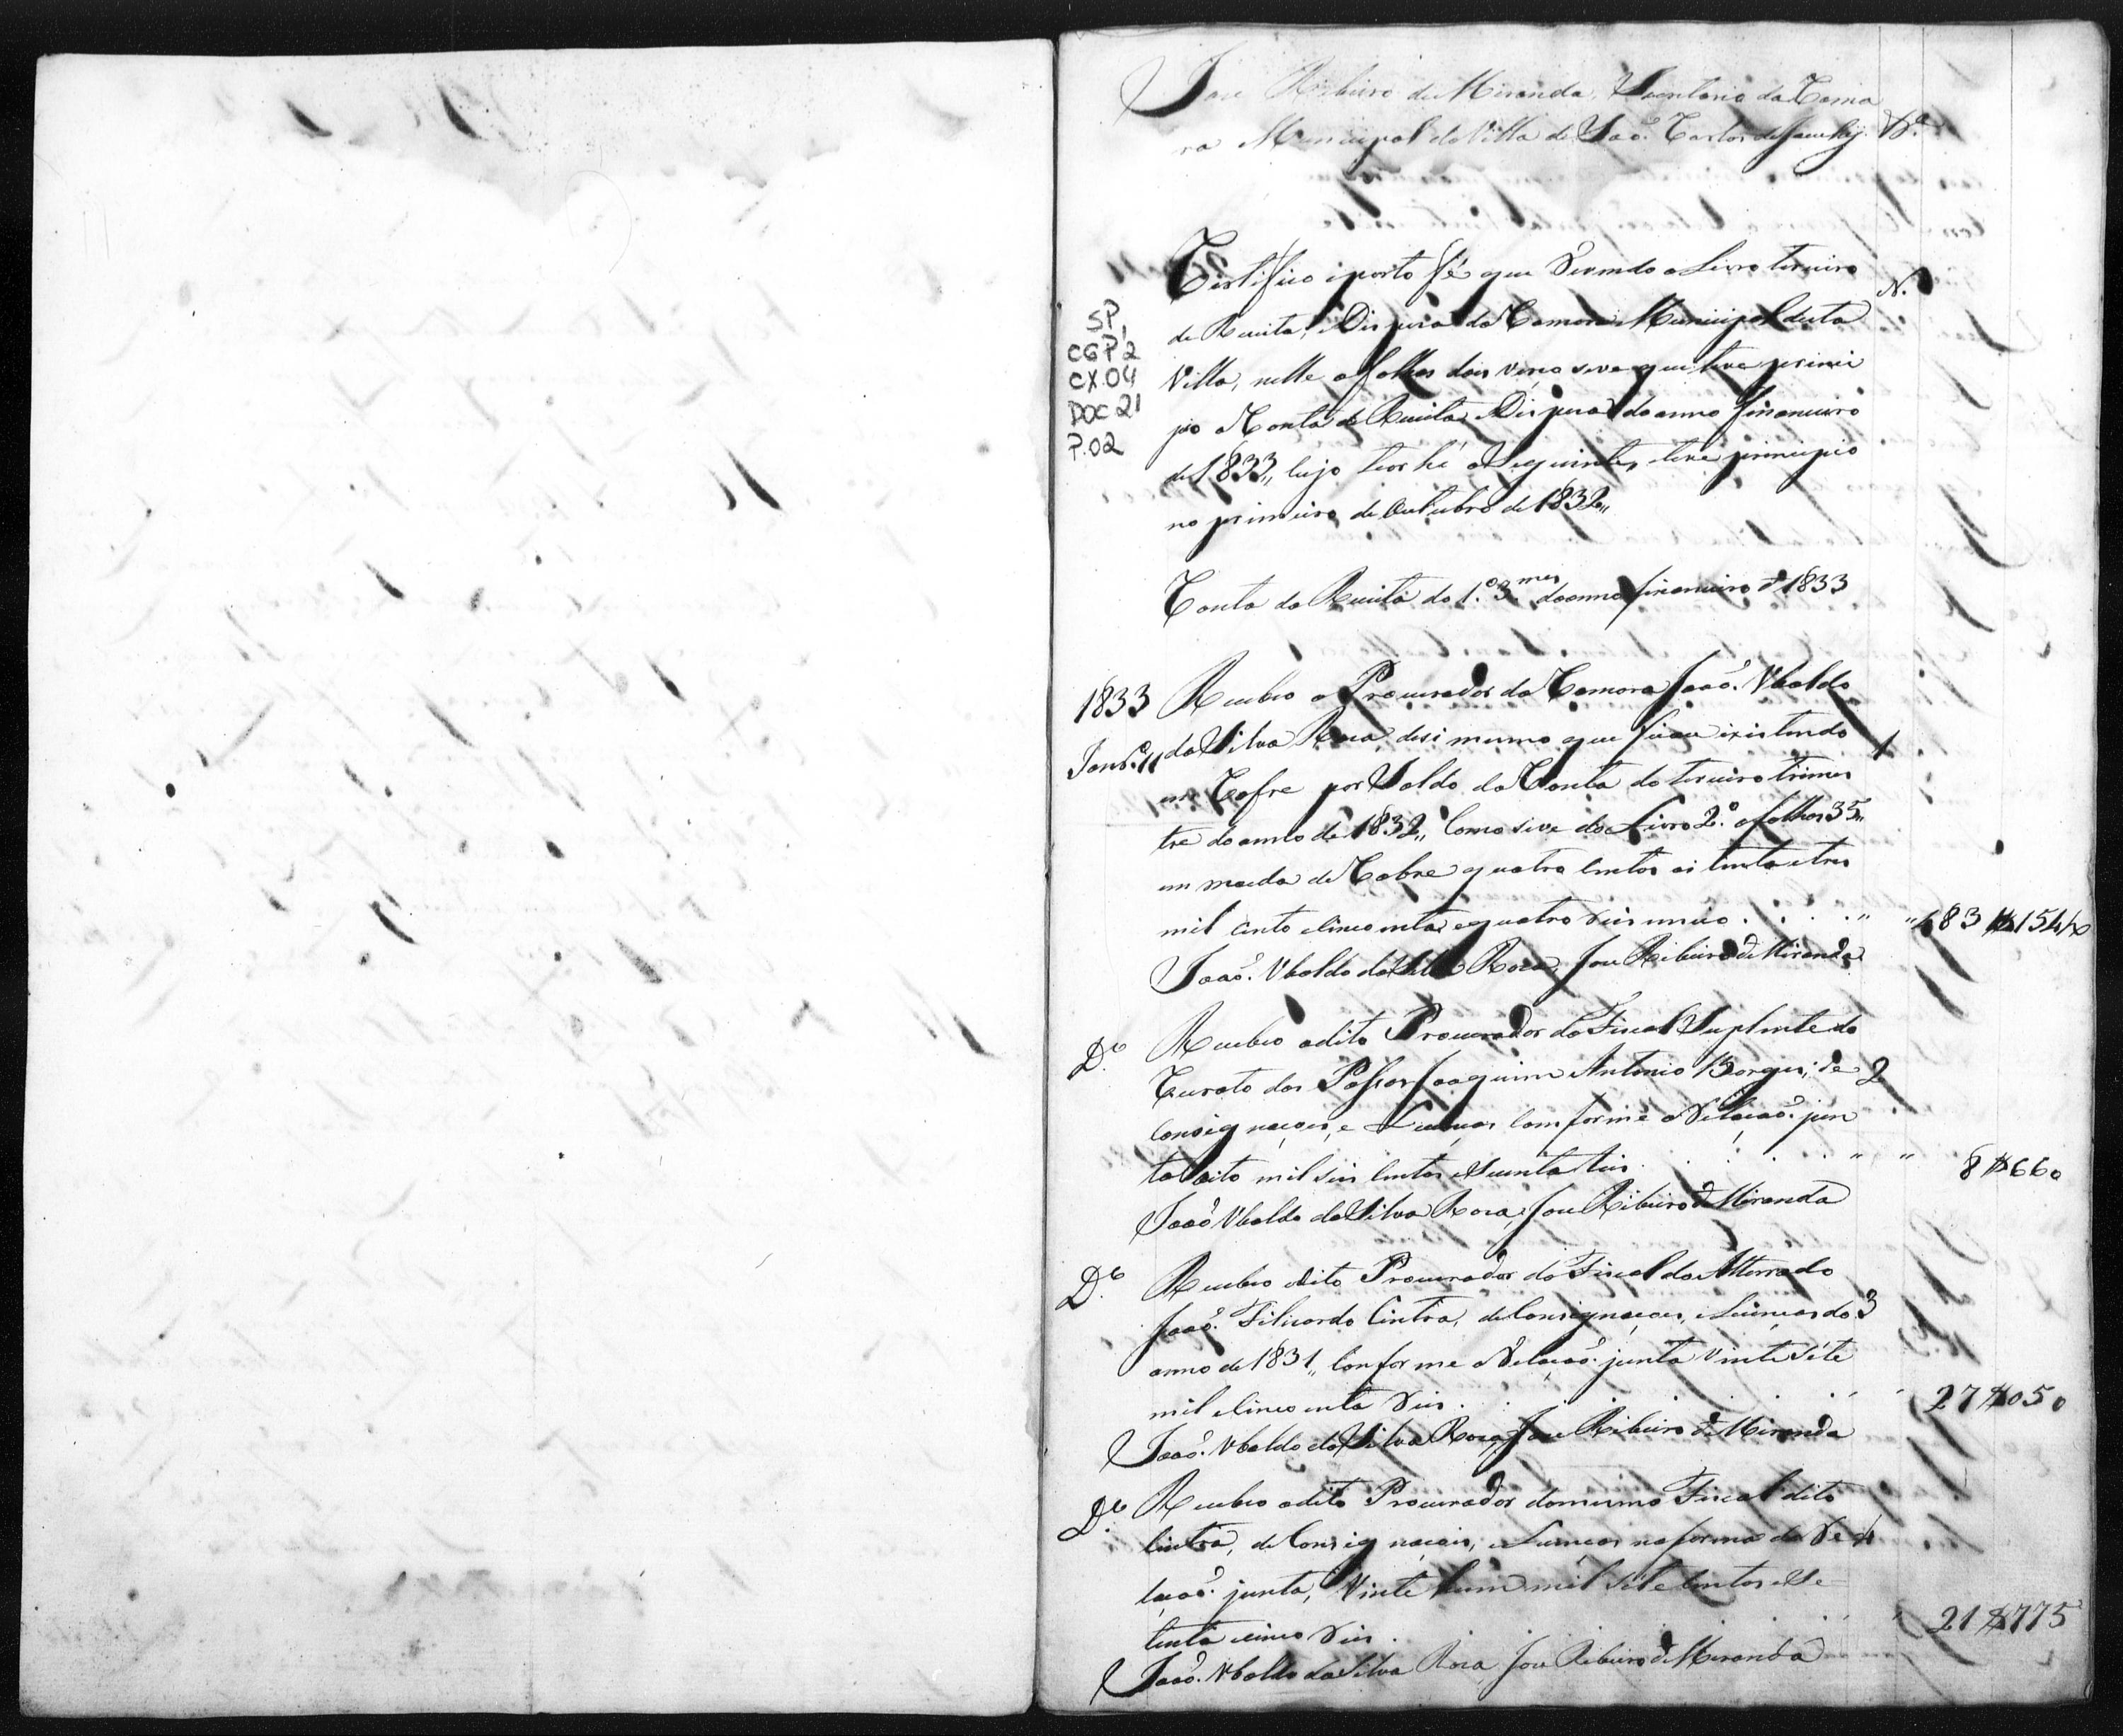 Jose Ribeiro de Miranda, Secretario da Cama
ra Municipal da Villa de Saõ Carlos de Jacuhy. &.ª
SP,
CGP2
CX.04
DOC 21
P.02
Certifico i porto fé que Vevendo o Livro terceiro
N.
de Receita, e Dispeza da Camara Municipal desta
Villa, nelle a folhas dois verso se ve que teve princi
pio a Conta de Receita e Dispeza do anno financeiro
de 1833,, cujo teor hé o Seguinte, teve principio
no primeiro de Outubro de 1832,,
Conta da Receita do 1.º 3.mes do anno financeiro d 1833
1833 Recebeo o Procurador da Camara Joaõ Ubaldo
Janr.º 11 da Silva Roza desi mesmo que ficou existindo 1
em Cofre por Saldo da Conta do terceiro trimes
tre do anno de 1832,, Como se ve do Livro 2.º a folhas 35,,
em moeda de Cobre quatro centos oi tenta e tres
mil cento e cinco enta e quatro reis e meio . . . . " " 483$154½
Joaõ Ubaldo da Silva Roza, Joze Ribeiro d Miranda
D.º Recebeo o dito Procurador do Fiscal Suplente do
Curato dos Passos Joaquim Antonio Borges, de 2
Consig naçoes, e Licenças comforme a Relaçaõ jun
ta oito mil seis centos e secenta reis . . . . . " " 8$660
Joaõ Ubaldo da Silva Roza, Joze Ribeiro d Miranda
D.º Recebeo o dito Procurador do Fiscal do Atterrado
Joaõ Felicardo Cintra, de Consignaçoes, e Licenças do 3
anno de 1831,, Conforme a Relaçaõ junta Vinte Séte
mil e cinco enta Reis . . . . . . 27$050
Joaõ Ubaldo da Silva Roza, Joze Ribeiro d Miranda
D.º Recebeo o dito Procurador do mesmo Fiscal dito
Cintra, de Consig naçois, e Licenças na forma da Re 4
laçaõ junta, Vinte hum mil Sete Centos e Se=
tenta e cinco Reis . . . . 21$775
Joaõ Ubaldo da Silva Roza Joze Ribeiro d Miranda